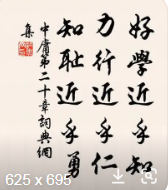 好學近乎知
力行近乎仁
知恥近乎勇
中庸第二十章詞典網
集
625 x 695